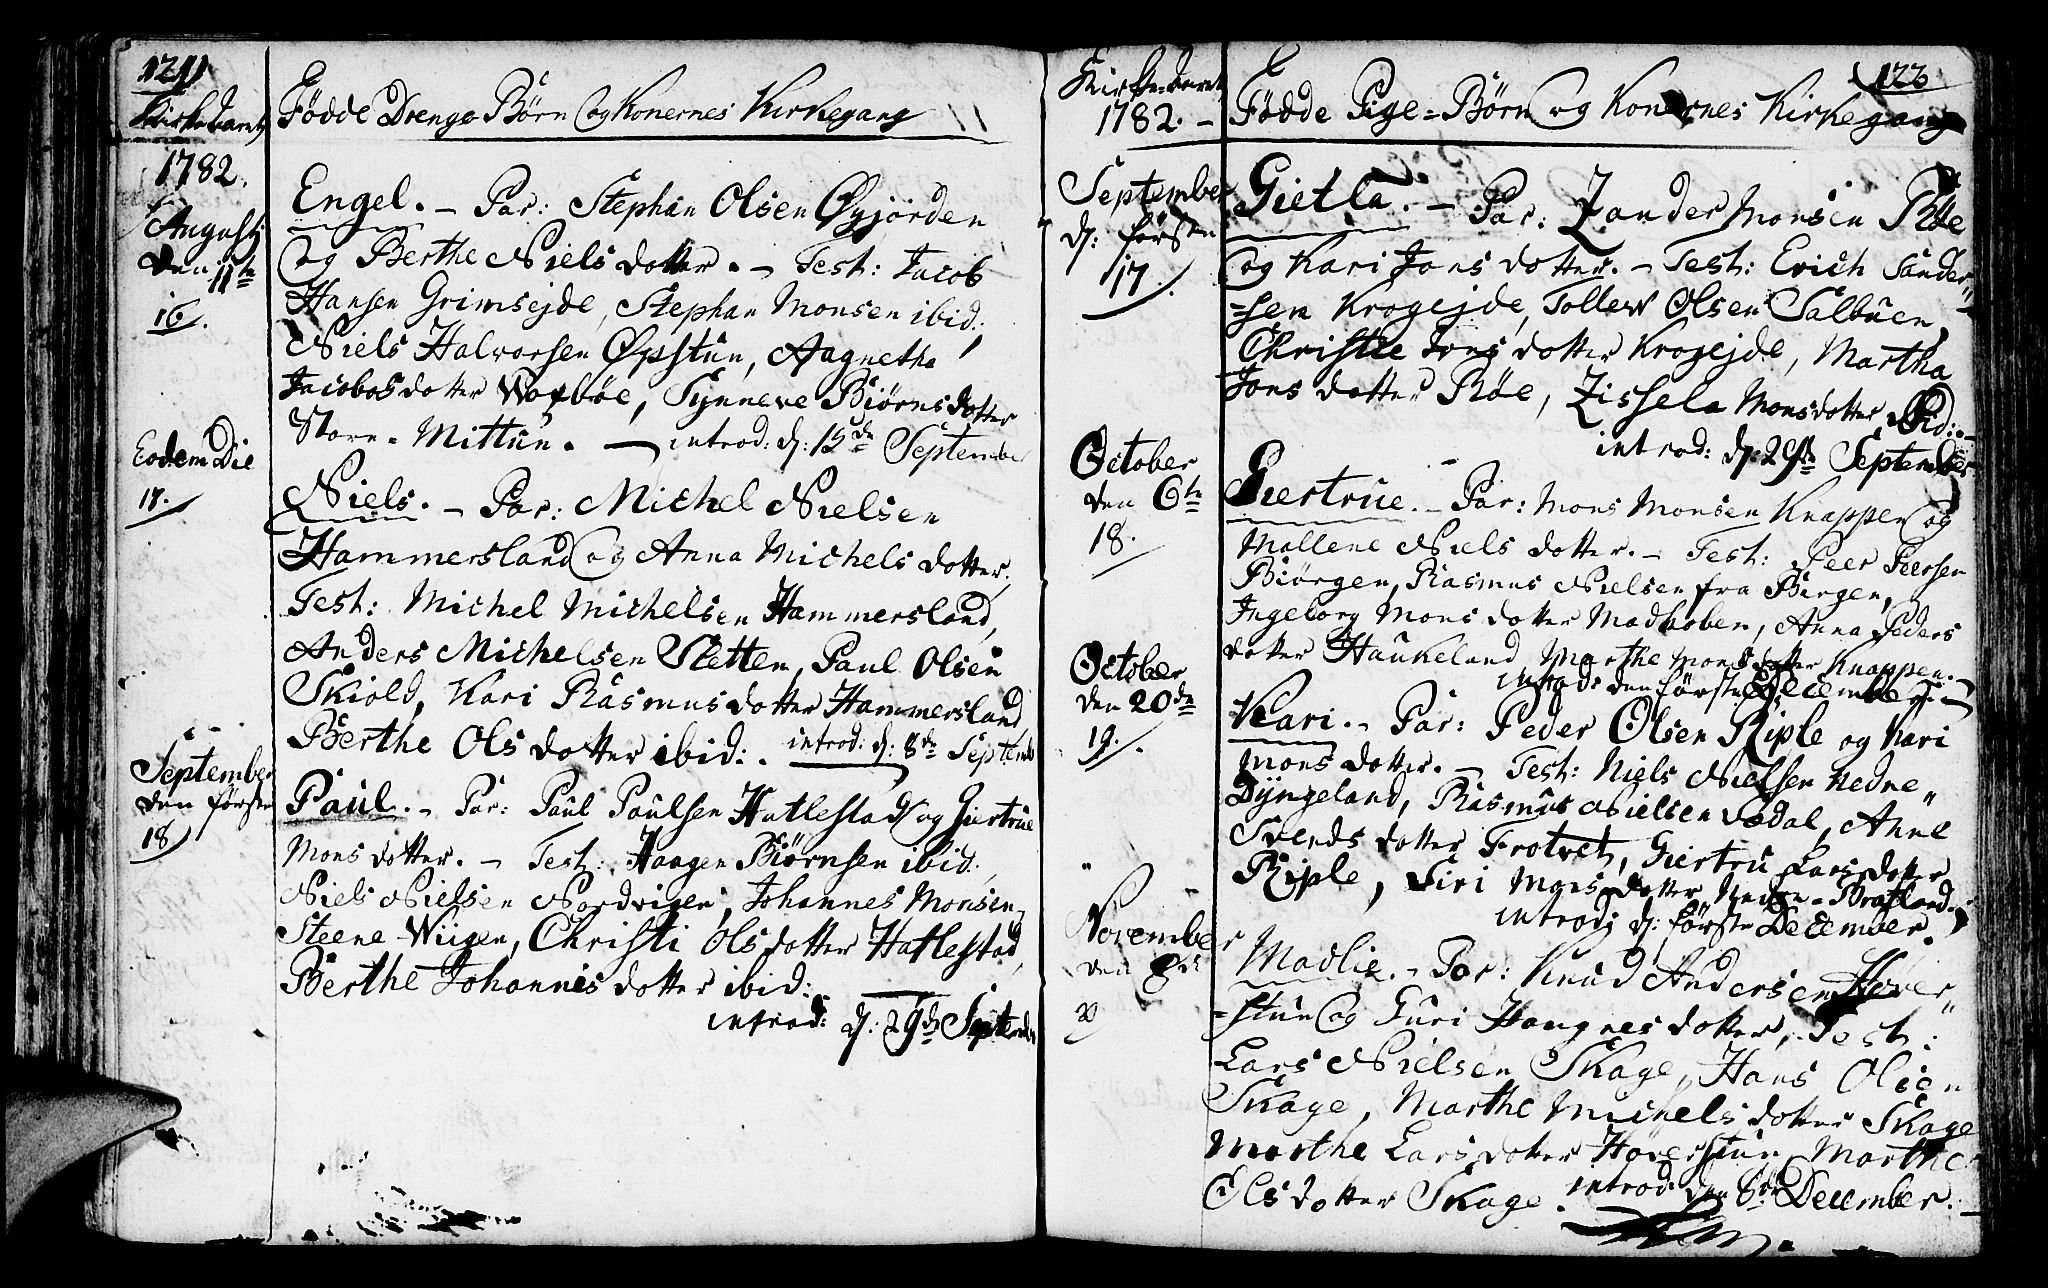 121
Kirke Aaret
Födde Drenge Börn og Konernes Kirkegang
1782.
Augusti
den 11te
16.
Engel. – Par: Stephan Olsen Øyjorden
og Berthe Niels dotter. – Test: Jacob
Hansen Grimsejde, Stephan Monsen ibid:,
Niels Halvorsen Øpstun, Aagnetha
Jacobas dotter Woxböe, Synneve Biörns dotter
Store-Mittun. — introd: d: 15de September
Eodem Die
17.
Niels. – Par: Michel Nielsen
Hammersland og Anna Michels dotter.
Test: Michel Michelsen Hammersland,
Anders Michelsen Sletten, Paul Olsen
Skiold, Kari Rasmus dotter Hammersland
Berthe Ols dotter ibid:. introd: d: 8de Septemb
September
den förste
18
Paul. – Par: Paul Paulsen Hatlestad og Giertrue
Mons dotter. – Test: Haagen Biörnsen ibid:,
Niels Nielsen Nordvigen, Johannes Monsen
Steens-Wiigen, Christi Ols dotter Hatlestad,
Berthe Johannis dotter ibid:
introd: d: 29de September
122
Kirke Aaret
1782. –
Födde Pige-Börn og Konernes Kirkegang
September
d: förste
17.
Gietla. – Par: Zander Monsen Röe
og Kari Jons dotter. – Test: Erich Sander"
=sen Krogejde, Tollew Olsen Salbuen,
Christie Jons dotter Krogejde, Martha
Jons dotter Röe, Zissela Monsdotter ibid:.–
introd: d: 29de September
October
den 6te
18.
Giertrue. – Par: Mons Monsen Knappen og
Mallene Niels dotter. – Test: Peer Peersen
Biörgen, Rasmus Nielsen fra Birgen,
Ingeborg Mons dotter Madhoben, Anna Peders
dotter Haukeland, Marthe Mons dotter Knappen.–
introd: den förste December.
October
den 20de
19.
Kari. – Par: Peder Olsen Riple og Kari
Mons dotter. – Test: Niels Nielsen Nedre"
Dyngeland, Rasmus Nielsen Dödal, Anne
Svends dotter Frotvet, Giertru Lars dotter
Riple, Siri Mons dotter Neden-Bratland.
introd: d: förste December.
November
den
20
Madlie. – Par: Knud Andersen Höver"
=stun og Guri Haagnes dotter, Test:
Lars Nielsen Skage, Hans Olsen
Skage, Marthe Michels dotter Skage
Marthe Lars dotter Höverstun, Marthe
Ols dotter Skage. introd: den 8de December. –